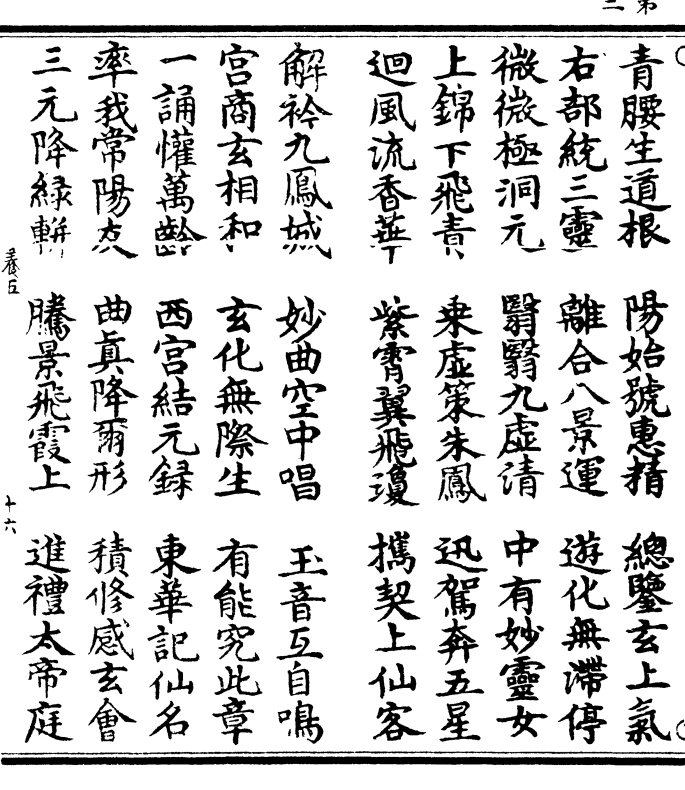 第二
青腰生道根 陽始號惠精 總鑒玄上氣
右部統三靈 離合八景運 遊化無滯停
微微極洞元 翳翳九虛清 中有妙靈女
上錦下飛青 乗虛策朱鳳 迅駕奔五星
迴風流香華 紫霄翼飛瓊 攜契上仙客
解衿九鳳城 妙曲空中唱 玉音互自鳴
宮商玄相和 玄化無際生 有能究此章
一誦懽萬齡 西宮結元録 東華記仙名
率我常陽 曲眞降爾形 積修感玄會
三元降緑軿 騰景飛霞上 進禮太帝庭
養五
十六